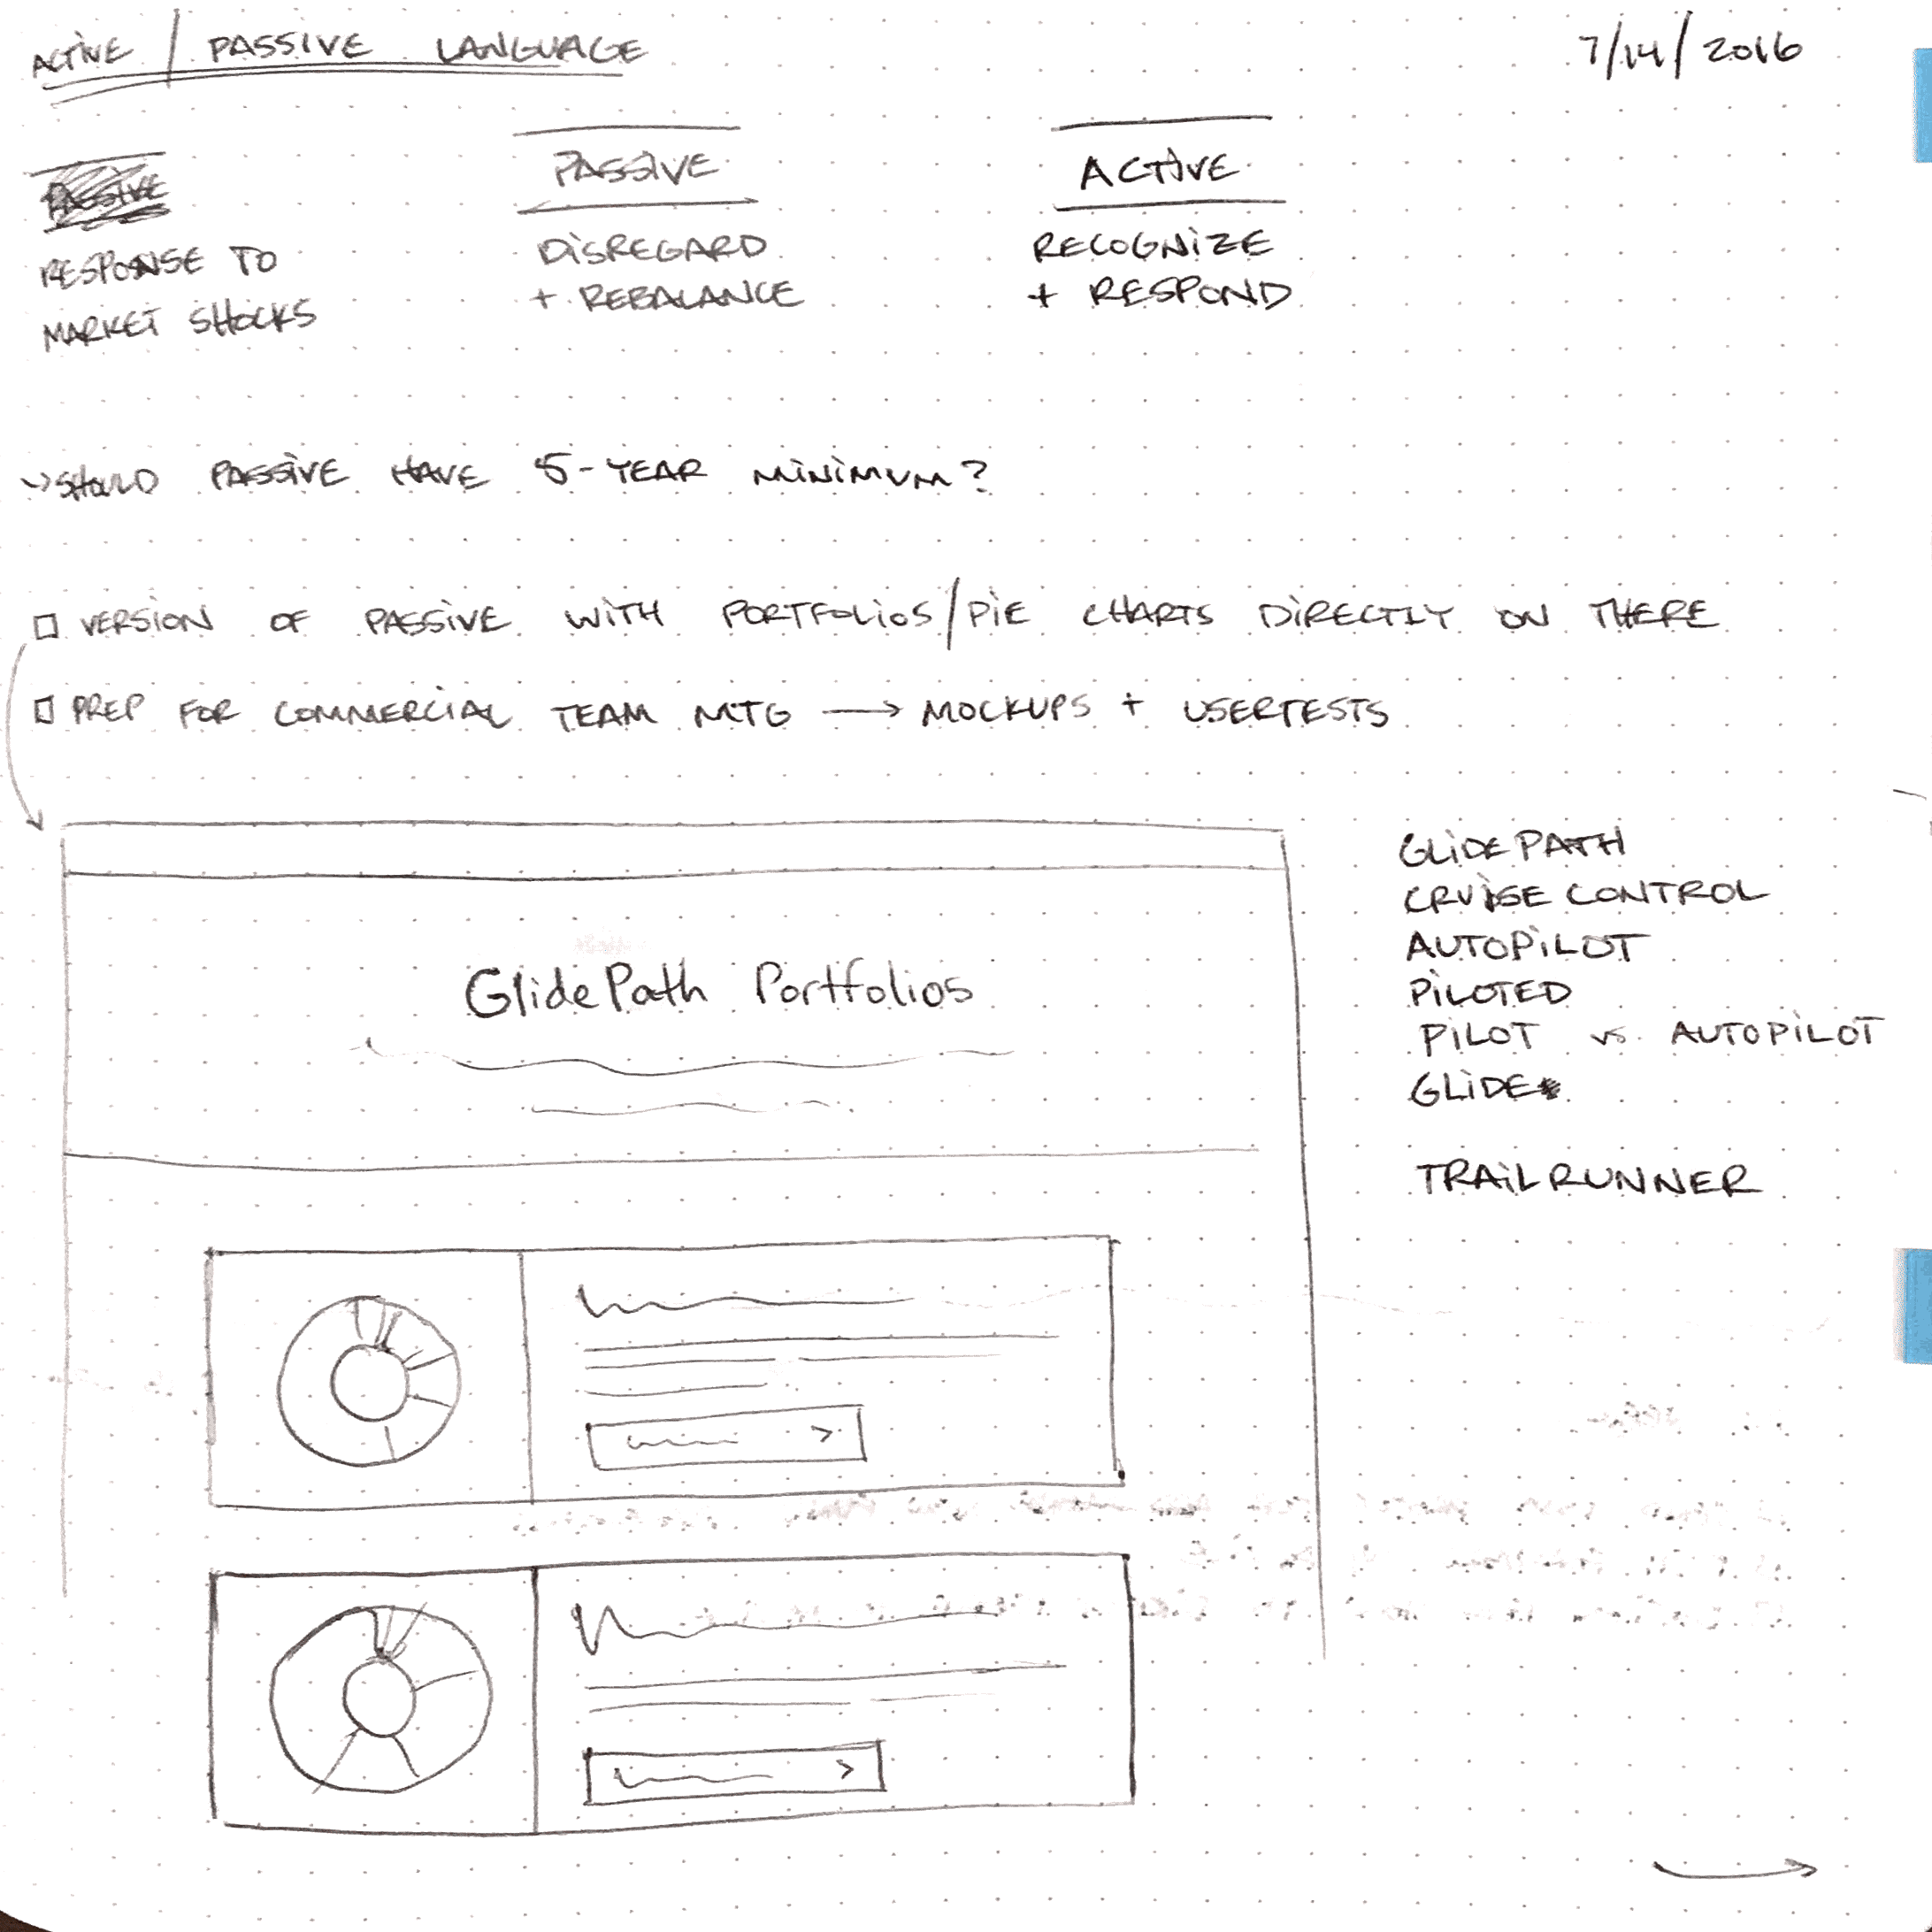 ACTIVE / PASSIVE LANGUAGE
7/14/2016
PASSIVE
PASSIVE
ACTIVE
RESPONSE TO
MARKET SHOCKS
DISREGARD
+ REBALANCE
RECOGNIZE
+ RESPOND
→ SHOULD PASSIVE HAVE 5-YEAR MINIMUM?
VERSION OF PASSIVE WITH PORTFOLIOS/PIE CHARTS DIRECTLY ON THERE
PREP FOR COMMERCIAL TEAM MTG → MOCKUPS + USERTESTS
GlidePath Portfolios
GLIDEPATH
CRUISE CONTROL
AUTOPILOT
PILOTED
PILOT vs. AUTOPILOT
GLIDE
TRAILRUNNER